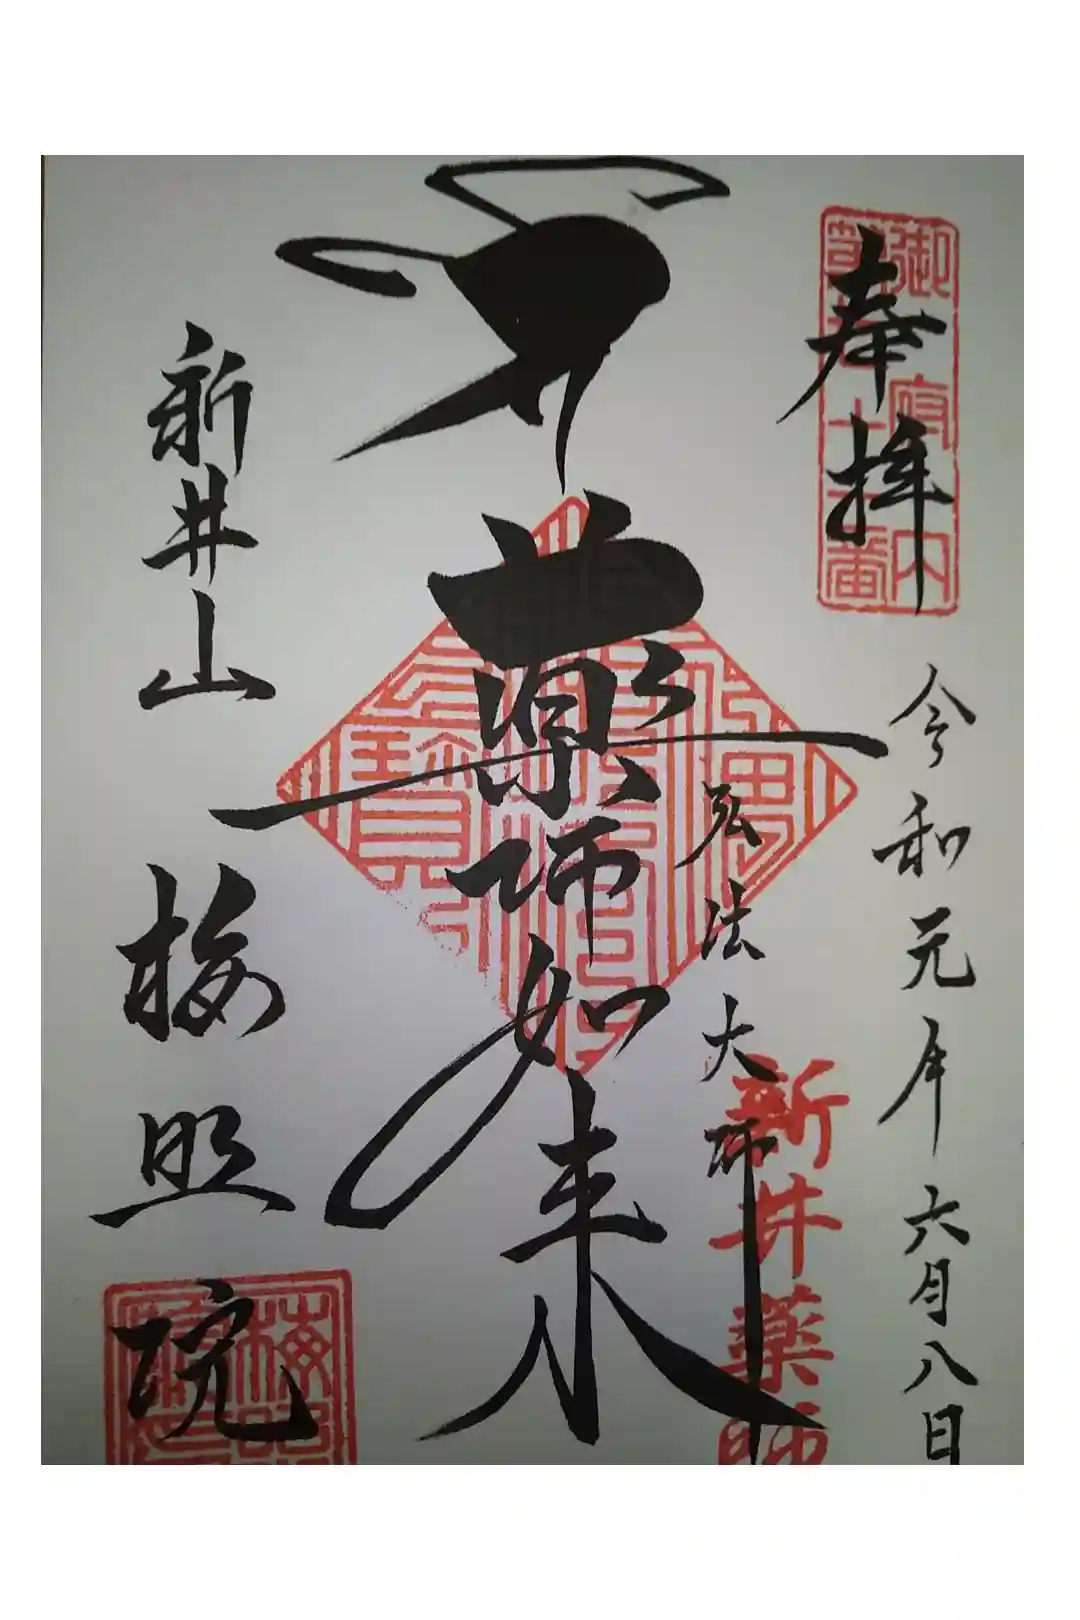 奉拝
令和元年六月八日
弘法大師
薬師如来
新井山 梅照院
御府内
第七十一番
新井薬師